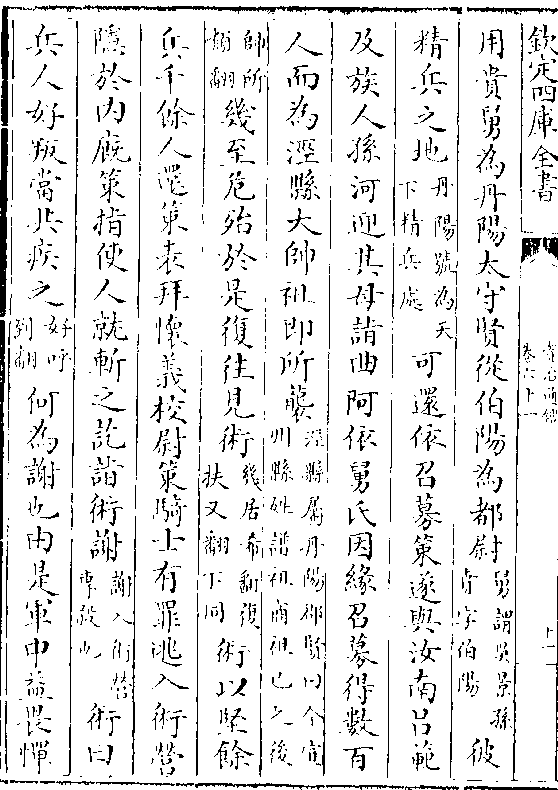 欽定四庫全書
資治通鑑
卷六十一
十一
用貴舅為丹陽太守賢從伯陽為都尉舅謂吳景孫賁字伯陽彼
精兵之地丹陽號為天下精兵處可還依召募策遂與汝南呂範
及族人孫河迎其母詣曲阿依舅氏因緣召募得數百
人而為涇縣大帥祖即所襲涇縣屬丹陽郡賢曰今宣州縣姓譜祖商祖己之後
帥所類翻幾至危殆於是復往見術幾居希翻復扶又翻下同術以堅餘
兵千餘人還策表拜懷義校尉策騎士有罪逃入術營
隱於内廐策指使人就斬之訖詣術謝謝入術營專殺也術曰
兵人好叛當共疾之好呼到翻何為謝也由是軍中益畏憚